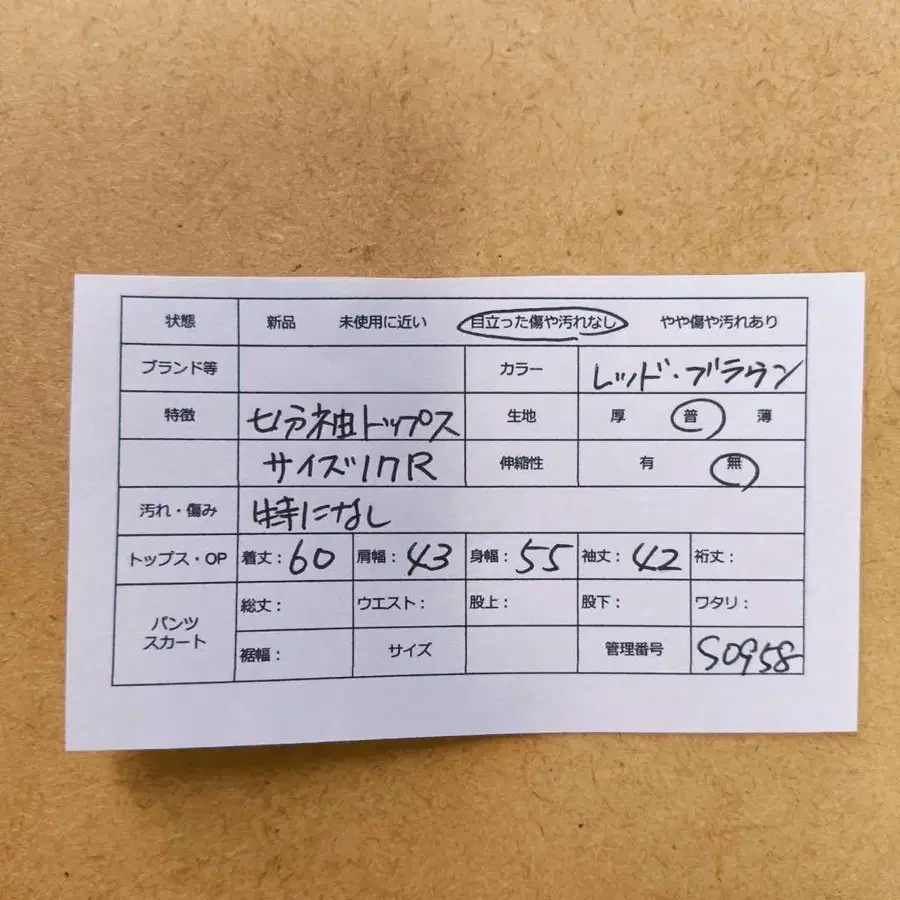 状態 新品 未使用に近い 目立った傷や汚れなし やや傷や汚れあり
ブランド等 カラー レッド・ブラウン
特徴 七分袖トップス 生地 厚 普 薄
サイズ17R 伸縮性 有 無
汚れ・傷み 特になし
トップス・OP 着丈：60 肩幅：43 身幅：55 袖丈：42 裄丈：
パンツ
スカート
総丈： ウエスト： 股上： 股下： ワタリ：
裾幅： サイズ 管理番号 S0958